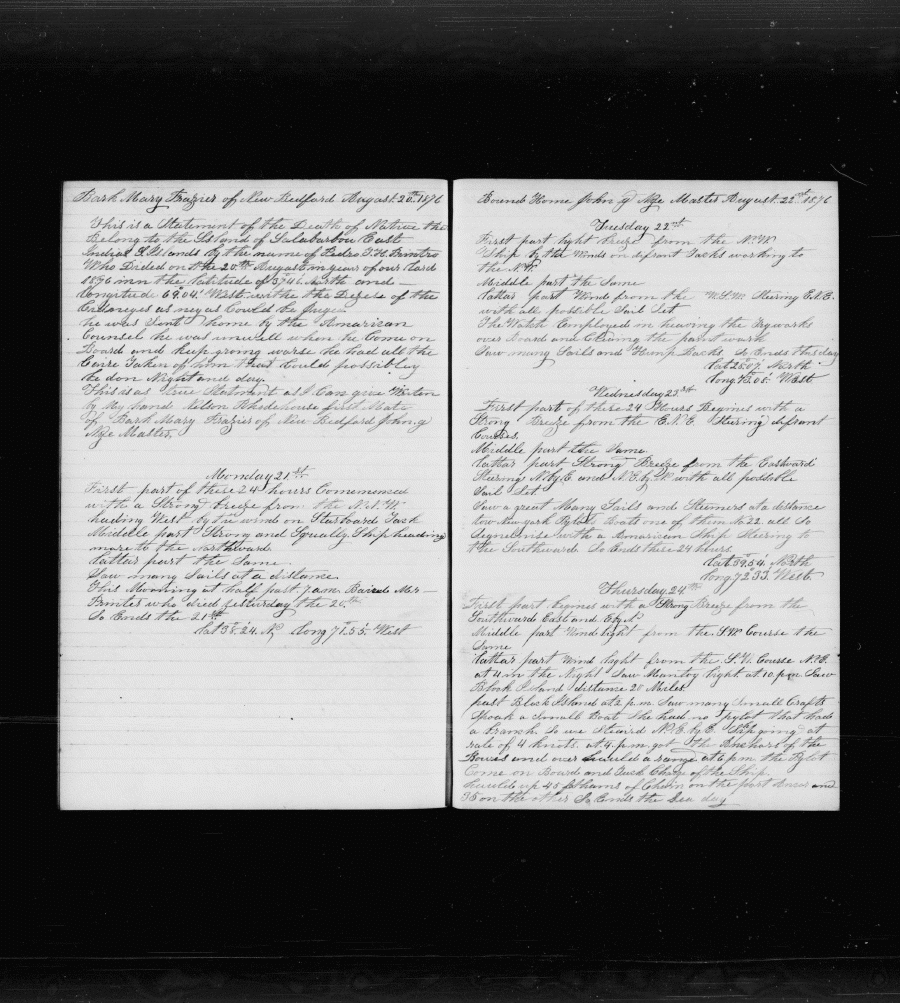 Bark Mary Frazier of New Bedford August 20th 1876
This is a Statement of the Death of Native the
Belong to the Island of Salabarbou East
Indias I Islands by the name of Pedro
Who Dided on the 20th August in year of our Lord
1876 inn the latitude of 37.41 North and
Longitude 69.04 West withe the Degree of the
as neyas Could be Juge
he was Sent home by the Amarican
Counsel he was unwell when he Come on
Board and keep grong warse he had all the
Caire taken of him that Could possibley
be don Night and day
This is as true Statment as I Can give Writen
by My hand Nelson first Mate
of Bark Mary Frazier of New Bedford John. g
Nye Master
Monday 21.st
First part of these 24 hours Comemenced
with a Strong breeze from the N.N.W.
heading West by the wind on Starboard Tack
Middele part Strong and Squally Ship heading
more to the Northward
lattar part the Same
Saw many Sails at a distance
This Morning at half past 7 a.m. Mr
who died yesturday the 20th
So Ends the 21st
Lat 38.24. N Long 71.55. West
Bound Home John g Nye Master August. 22nd 1876
Tuesday 22nd
First part light breeze from the N.W
Ship by the Winds on difrant Tacks working to
the N.W
Middele part the Same
lattar part Wind from the W.S.W. Stering E.N.E.
with all possible Sail Set
The Watch Employed in heaving the Tryworks
over Board and Cleaning the paint work
Saw many Sails and So Ends this day
Lat 38.07. North
Long 73.05. West
Wednesday 23rd
First part of these 24 Hours Begines with a
Strong Breeze from the E.N.E Stering difrant
Courses.
Middele part the Same
lattar part Strong Breeze from the Eastward
Stering N.by.E and N.E.by.N with all possible
Sail Set
Saw a great Many Sails and Steimers at a distance
tow New york Pylot Boats one of them No 22 all So
with a Amarican Ship Stering to
the Southward So Ends these 24 hours
Lat 39.54. North
Long 72.33. West.
Thursday 24.th
First part begines with a Strong Breeze from the
Southward East and
Middele part Wind light from the S.W Course the
Same
lattar part Wind light from the S.W. Course N.E.
at 4 in the Night Saw light. at 10 p.m. Saw
Block Island distance 20 Miles
past Block Island at 2 p.m. Saw many Small Crafts
Spoak a Small Boat She had no pylot that had
a branch So we Steard N.E. by E. Ship going at
rate of 4 knots. at 4. p.m. got the Anchors of the
Bowes and over a range at 6 p.m the Pylot
Come on Board and Tuck Charge of the Ship.
up 45 fathoms of Chain on the part Ancor and
35 on the other So Ends the Sea day